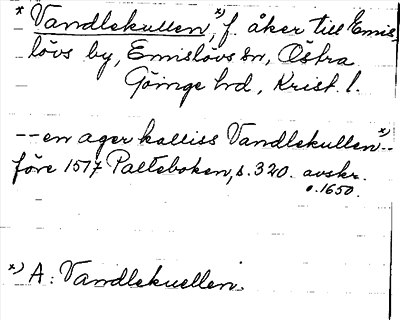 * Vandlekullen, *) f. åker till Emis-
lövs by, Emislövs sn, Östra
Göinge hd, Krist. l.
-- en ager kalliss Vandlekullen *) --
före 1517 Palteboken, s. 320. avskr.
o. 1650.
*) A: Vandlekuellen.